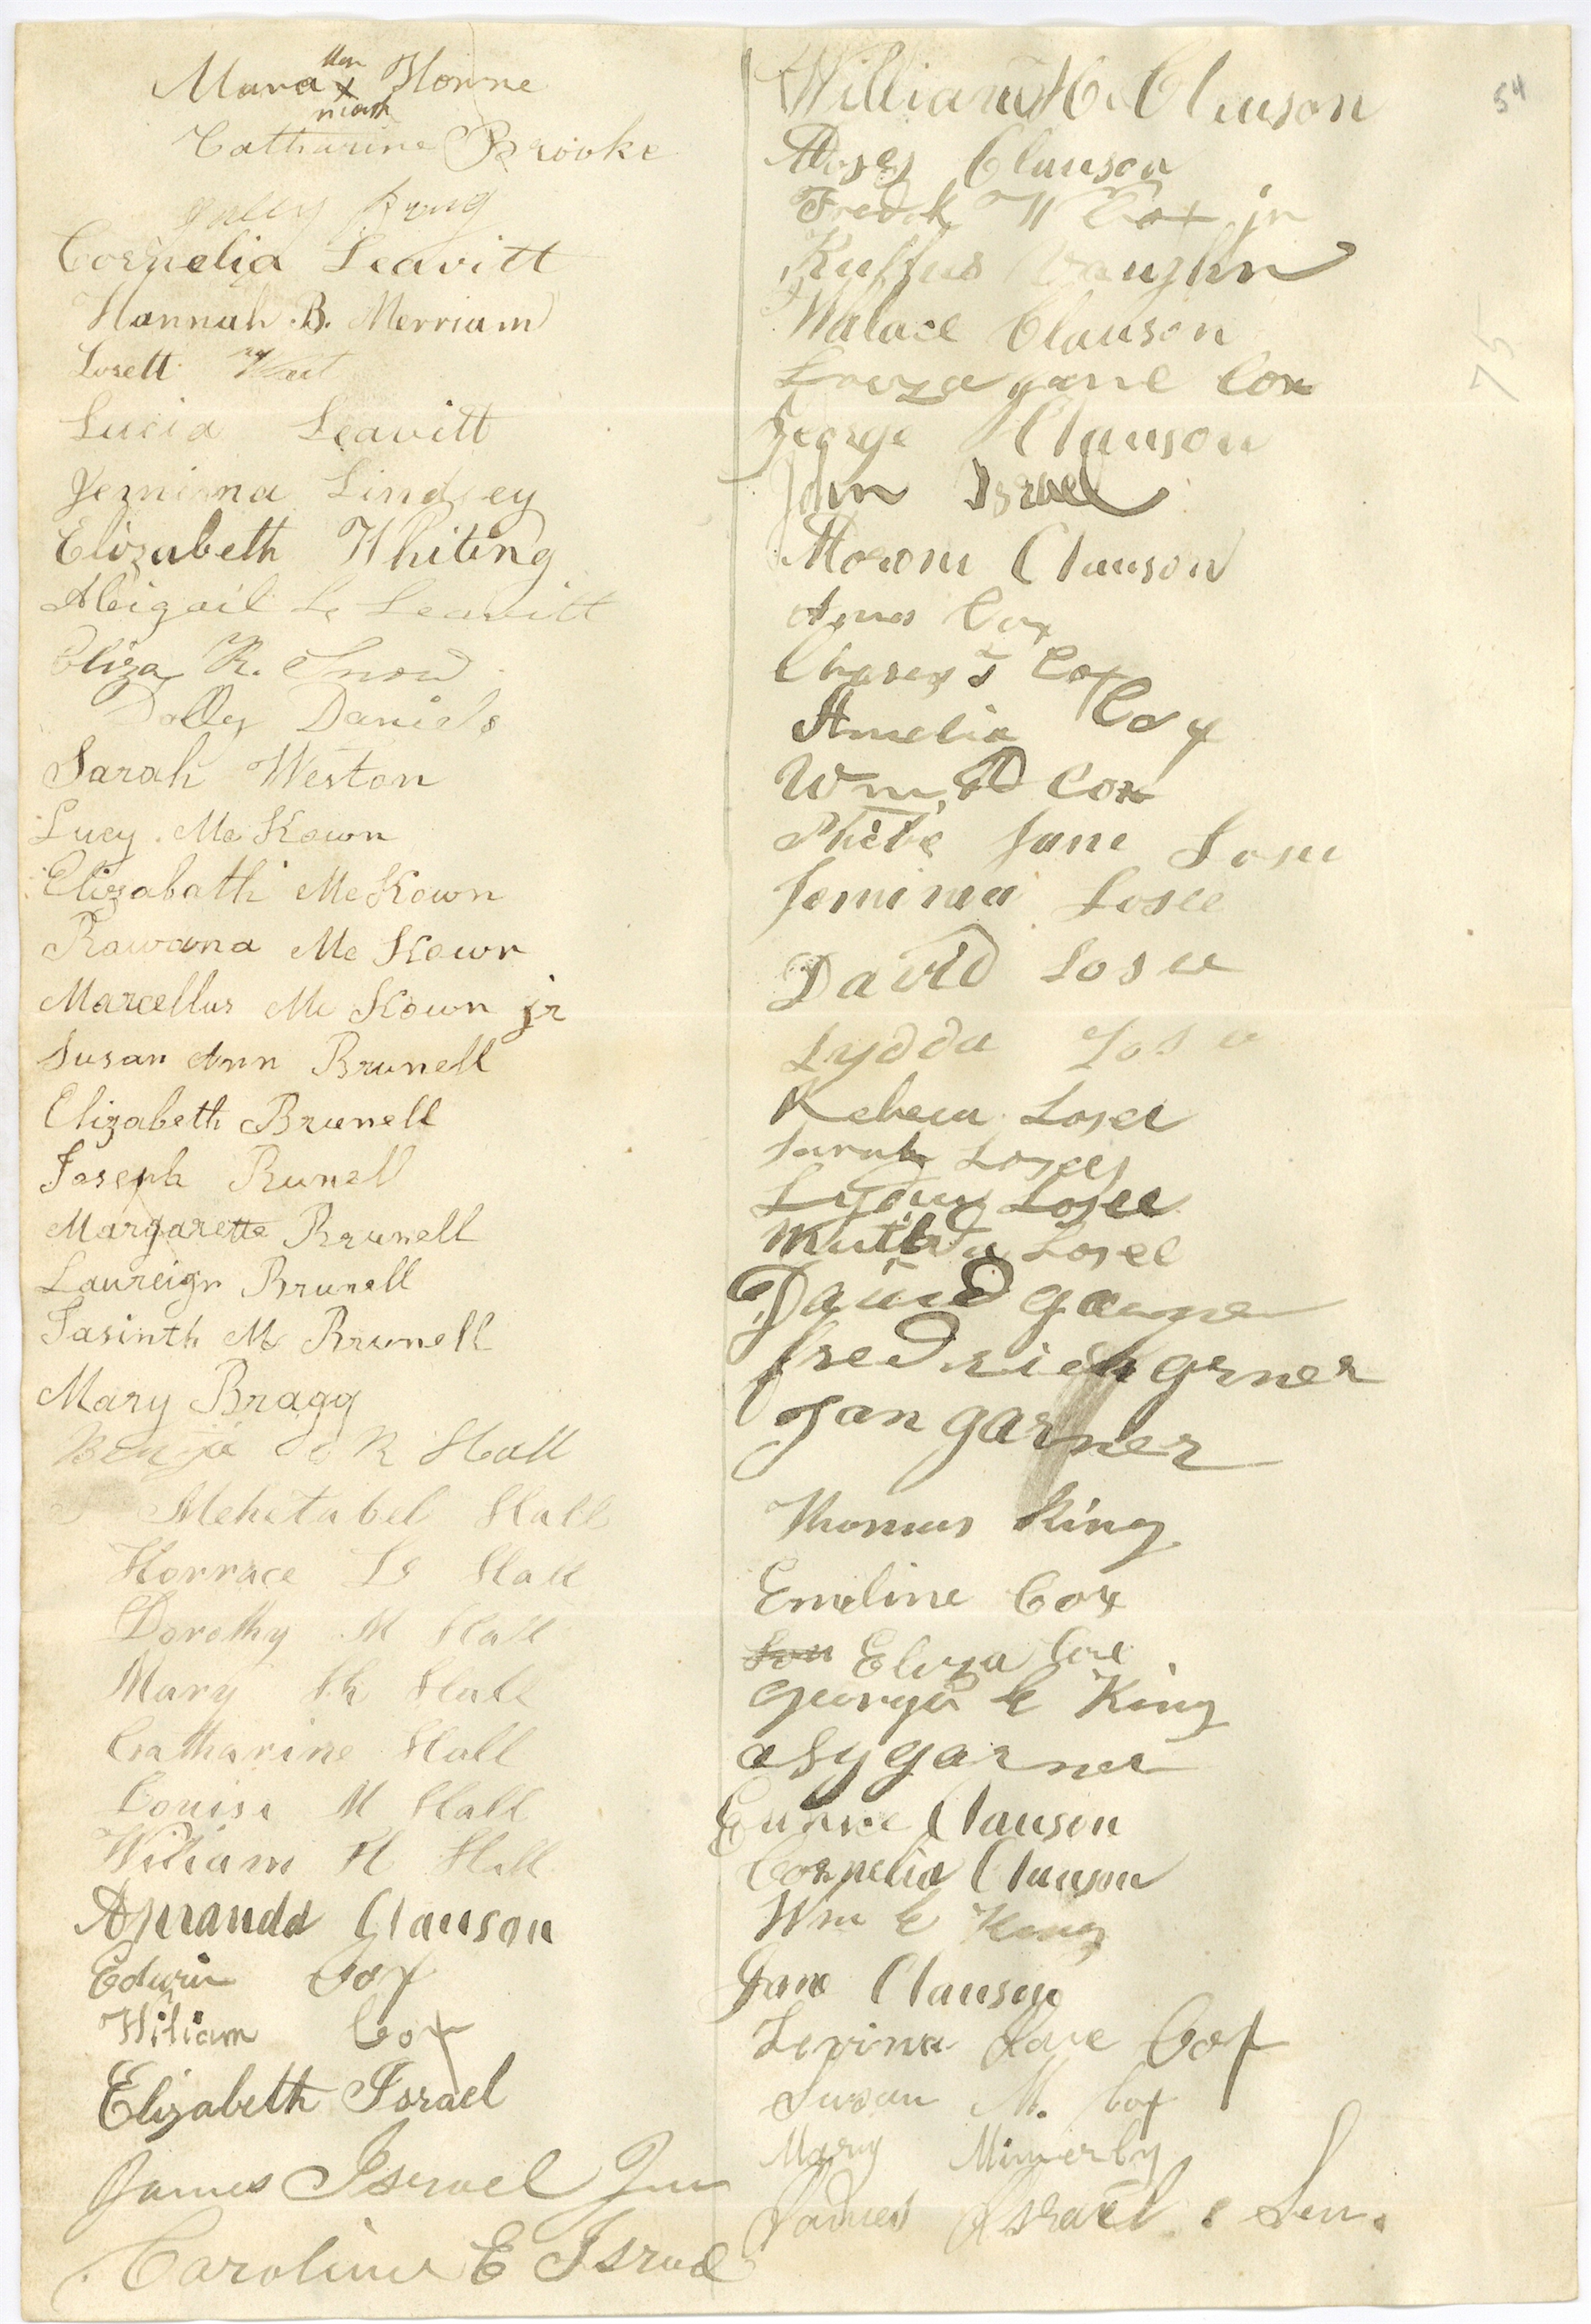 Mara her x mark Horne
Catharine Brooke
Polly
Cornelia Leavitt
Hannah B. Merriam
Losell
Lucia Leavitt
Jemima Lindsey
Elizabeth Whiting
Abigail L Leavitt
Eliza R. Snow
Dolly Daniels
Sarah Weston
Lucy McKown
Elizabath McKown
Rawana McKown
Marcellus McKown jr
Susan Ann Brunell
Elizabeth Brunell
Joseph Brunell
Margarette Brunell
Laureign Brunell
Jasinth M Brunell
Mary Bragg
R Hall
Mehetabel Hall
Horrace Hall
Dorothy M Hall
Mary Hall
Catharine Hall
Louisa M Hall
Wiliam H Hall
Amanda Clauson
Edwin Cox
Wiliam Cox
Elizabeth Israel
James Iserael Jun
Caroline E Israel
54
75
William H. Clauson
Moses Clauson
Fredk W Cox jr
Ruffus Vaughn
Walace Clauson
Louza jane Cox
George Clauson
John Israel
Moroni Clauson
Amos Cox
Cox
Amelia Cox
Wm Cox
Phebe Jane Losee
Jemima Losee
David Losee
Lydda Losee
Rebeca Losee
Sarah Losee
Lydia Losee
Losee
David
fredrick grner
Jan garner
Thomas King
Emeline Cox
Eliza Cox
George E King
garner
Eunice Clauson
Cornelia Clauson
Wm E King
Jane Clauson
Levina Cox
Susan M. Cox
Mary
James Israel Sen.